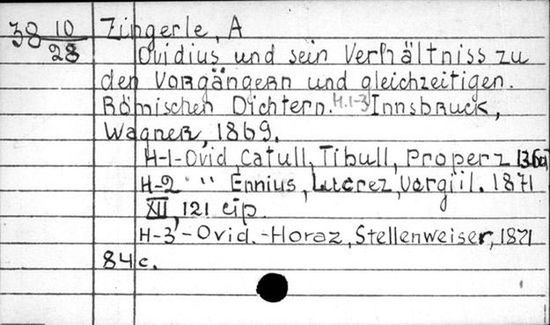 38 10/28 Zingerle, A
Ovidius und sein Verhältniss zu
den Vorgängern und gleichzeitigen.
Römischen Dichtern. H.1-3 Innsbruck,
Wagner, 1869.
H-1-Ovid, Catull, Tibull, Properz
H-2 " Ennius, Lucrez, Vergil. 1871
XII, 121 cip.
H-3-Ovid.-Horaz, Stellenweiser, 1871
84 c.